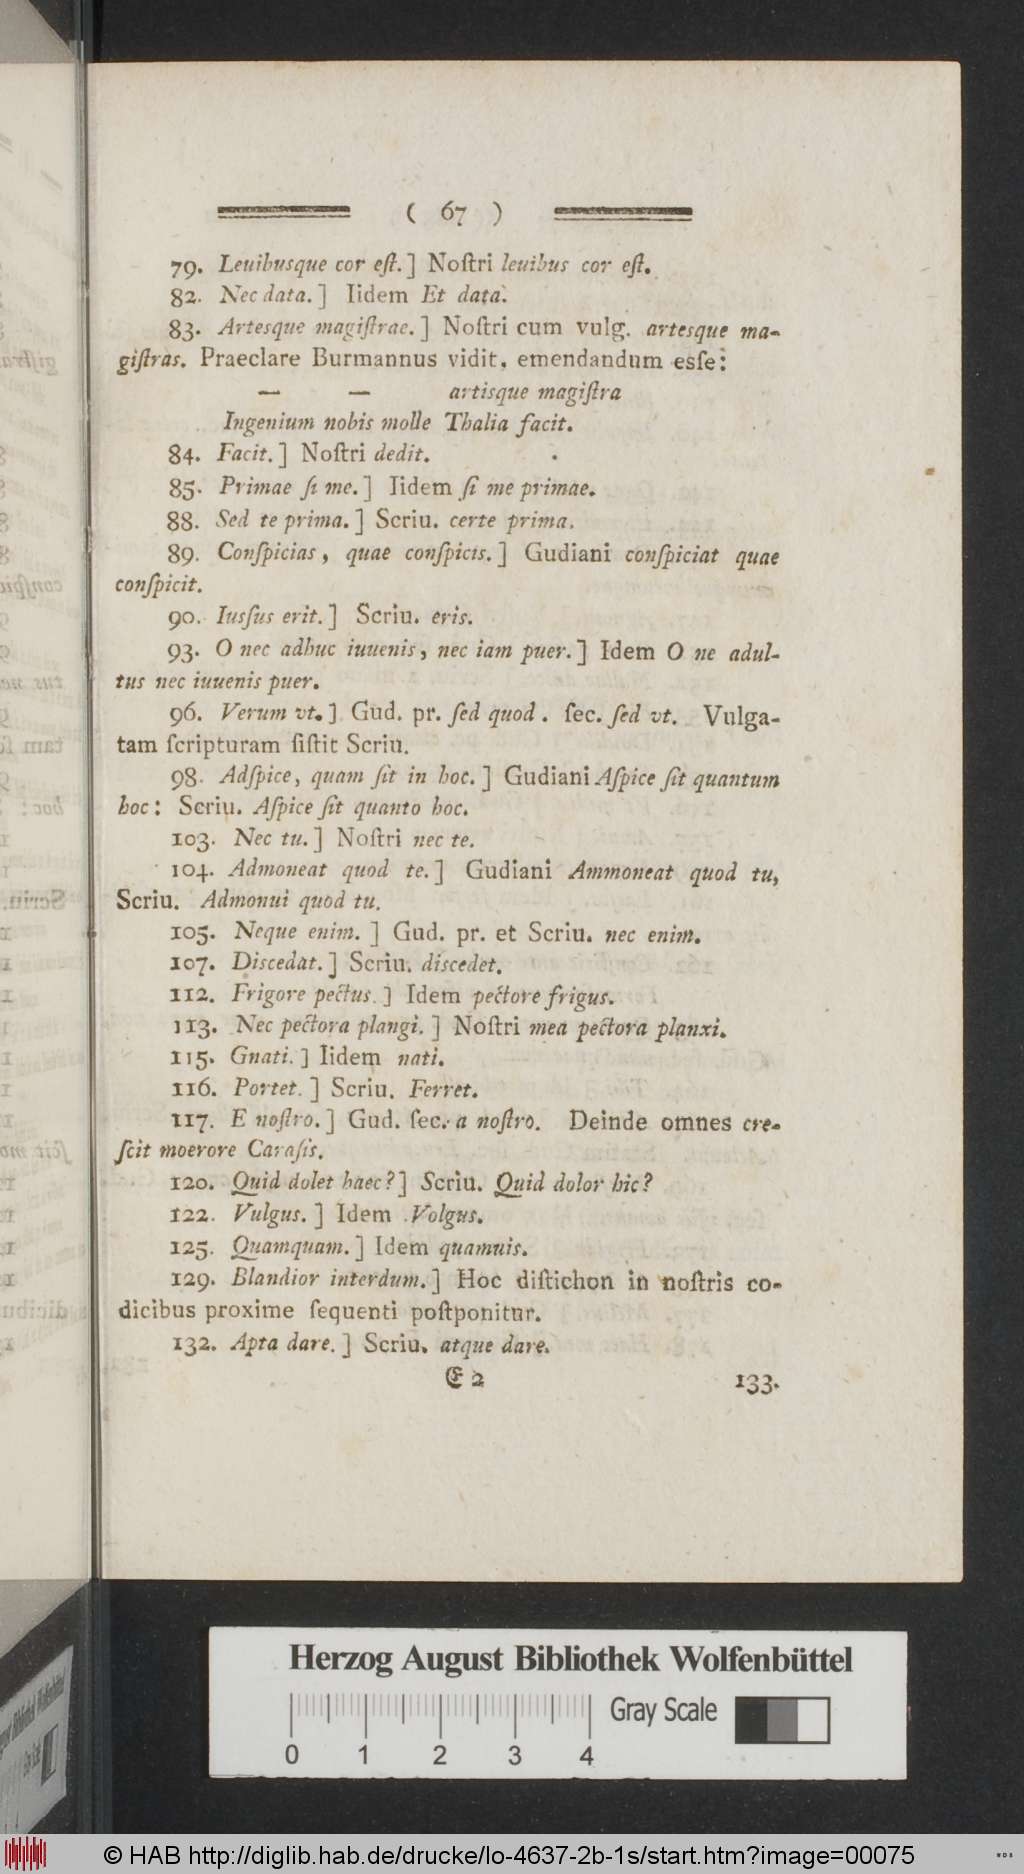 ( 67 )
79. Leuibusque cor eſt.] Noſtri leuibus cor eſt.
82. Nec data.] Iidem Et data.
83. Artesque magiſtrae.] Noſtri cum vulg. artesque ma-
giſtras. Praeclare Burmannus vidit, emendandum esſe:
— — artisque magiſtra
Ingenium nobis molle Thalia facit.
84. Facit.] Noſtri dedit.
85. Primae ſi me.] Iidem ſi me primae.
88. Sed te prima.] Scriu. certe prima.
89. Conſpicias, quae conſpicis.] Gudiani conſpiciat quae
conſpicit.
90. Iusſus erit.] Scriu. eris.
93. O nec adhuc iuuenis, nec iam puer.] Idem O ne adul-
tus nec iuuenis puer.
96. Verum vt.] Gud. pr. ſed quod. ſec. ſed vt. Vulga-
tam ſcripturam ſiſtit Scriu.
98. Adſpice, quam ſit in hoc.] Gudiani Aſpice ſit quantum
hoc: Scriu. Aſpice ſit quanto hoc.
103. Nec tu.] Noſtri nec te.
104. Admoneat quod te.] Gudiani Ammoneat quod tu,
Scriu. Admonui quod tu.
105. Neque enim.] Gud. pr. et Scriu. nec enim.
107. Discedat.] Scriu. discedet.
112. Frigore pectus.] Idem pectore frigus.
113. Nec pectora plangi.] Noſtri mea pectora planxi.
115. Gnati.] Iidem nati.
116. Portet.] Scriu. Ferret.
117. E noſtro.] Gud. ſec. a noſtro. Deinde omnes cre-
ſcit moerore Caraſis.
120. Quid dolet haec?] Scriu. Quid dolor hic?
122. Vulgus.] Idem Volgus.
125. Quamquam.] Idem quamuis.
129. Blandior interdum.] Hoc diſtichon in noſtris co-
dicibus proxime ſequenti poſtponitur.
132. Apta dare.] Scriu. atque dare.
E 2 133.
Herzog August Bibliothek Wolfenbüttel
Gray Scale
0 1 2 3 4
© HAB http://diglib.hab.de/drucke/lo-4637-2b-1s/start.htm?image=00075